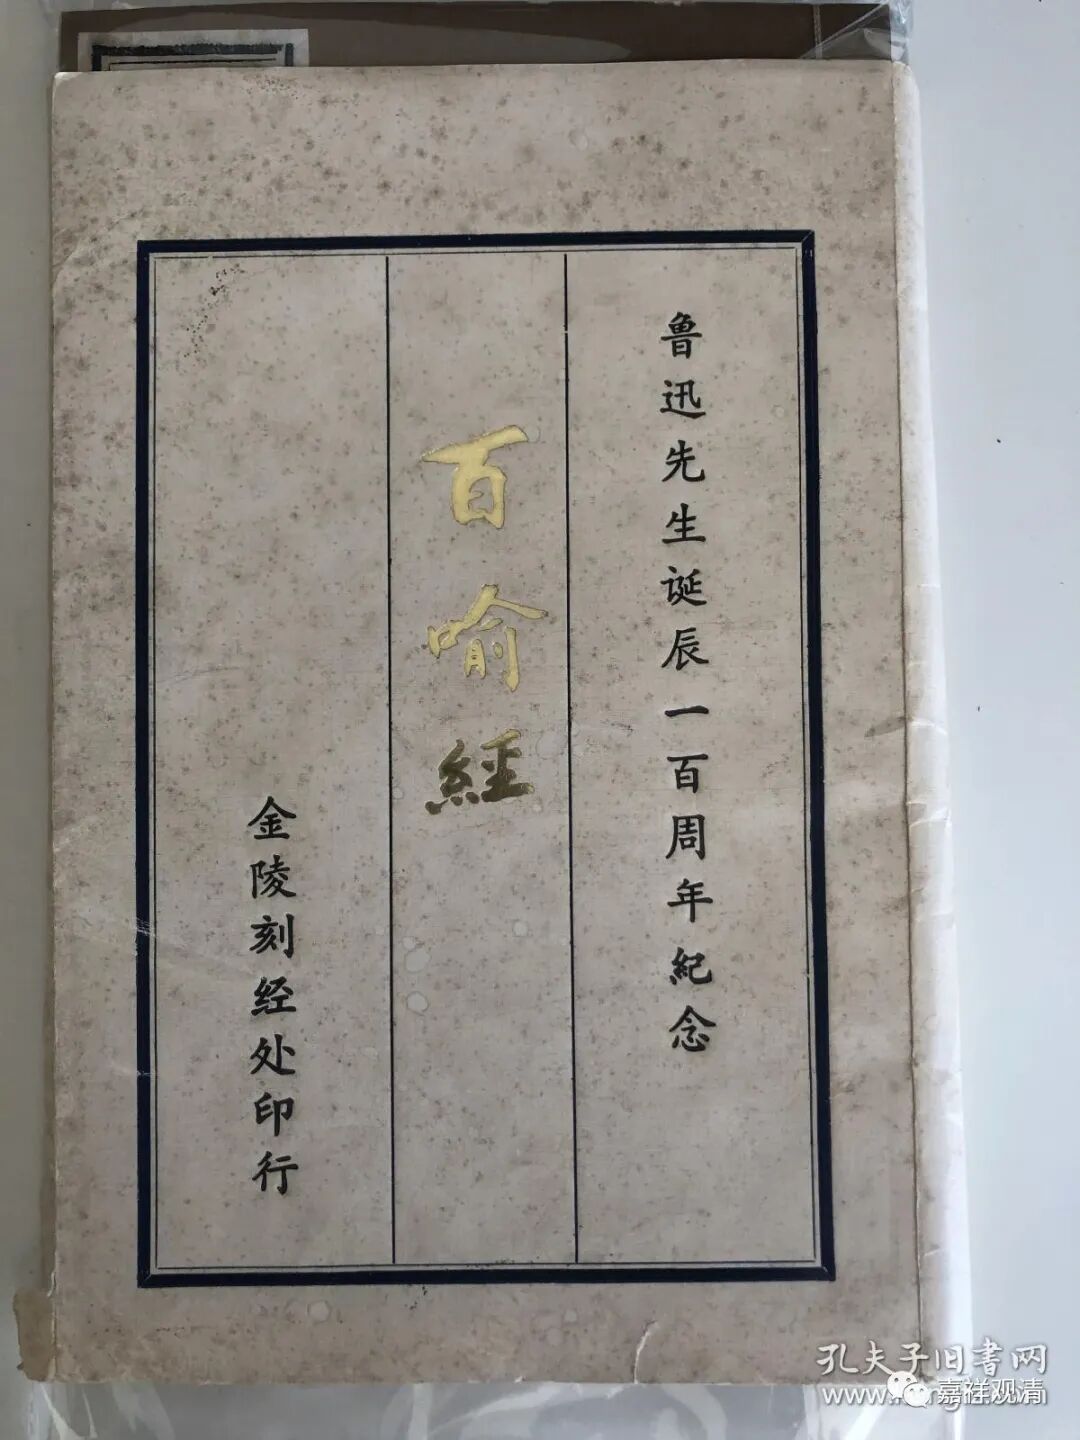 鲁迅先生诞辰一百周年紀念
百喻經
金陵刻经处印行
孔夫子旧書网
嘉祥观清